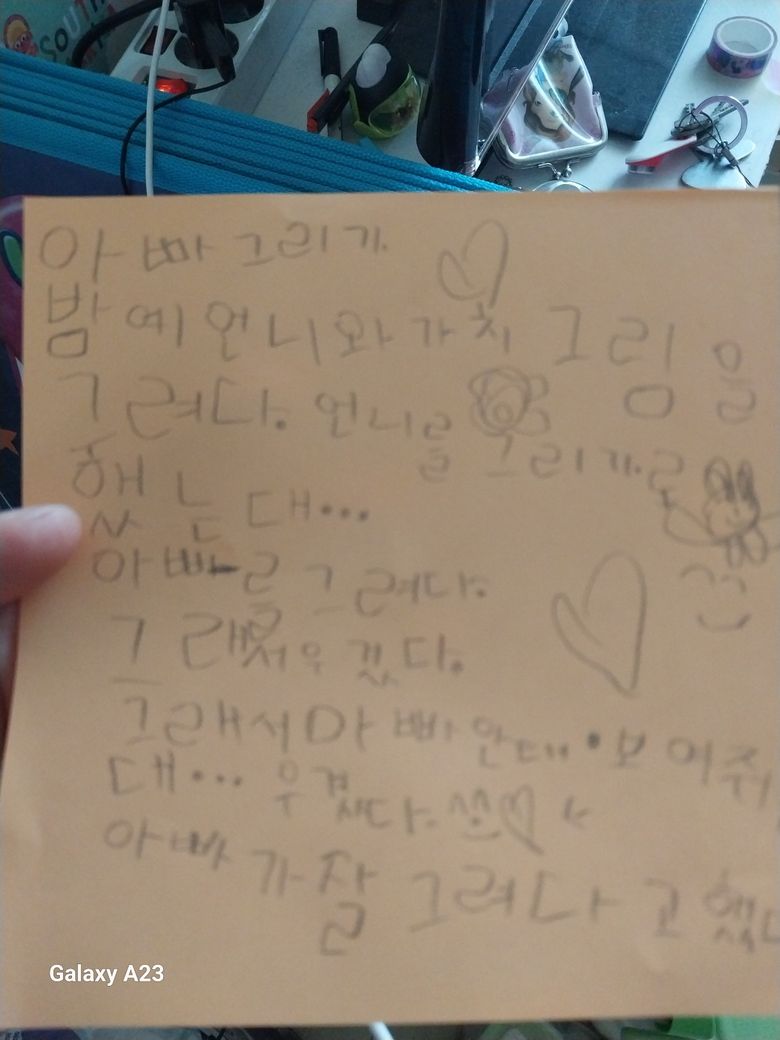 SOUTH
아빠 그리기
밤에 언니와 가치 그림을
그려다. 언니를 그리기로
했는대...
아빠를 그려다.
그래서 우겼다.
그래서 아빠 안대 보여줘
대... 우겼다.
아빠가 잘 그려다고 했다
Galaxy A23